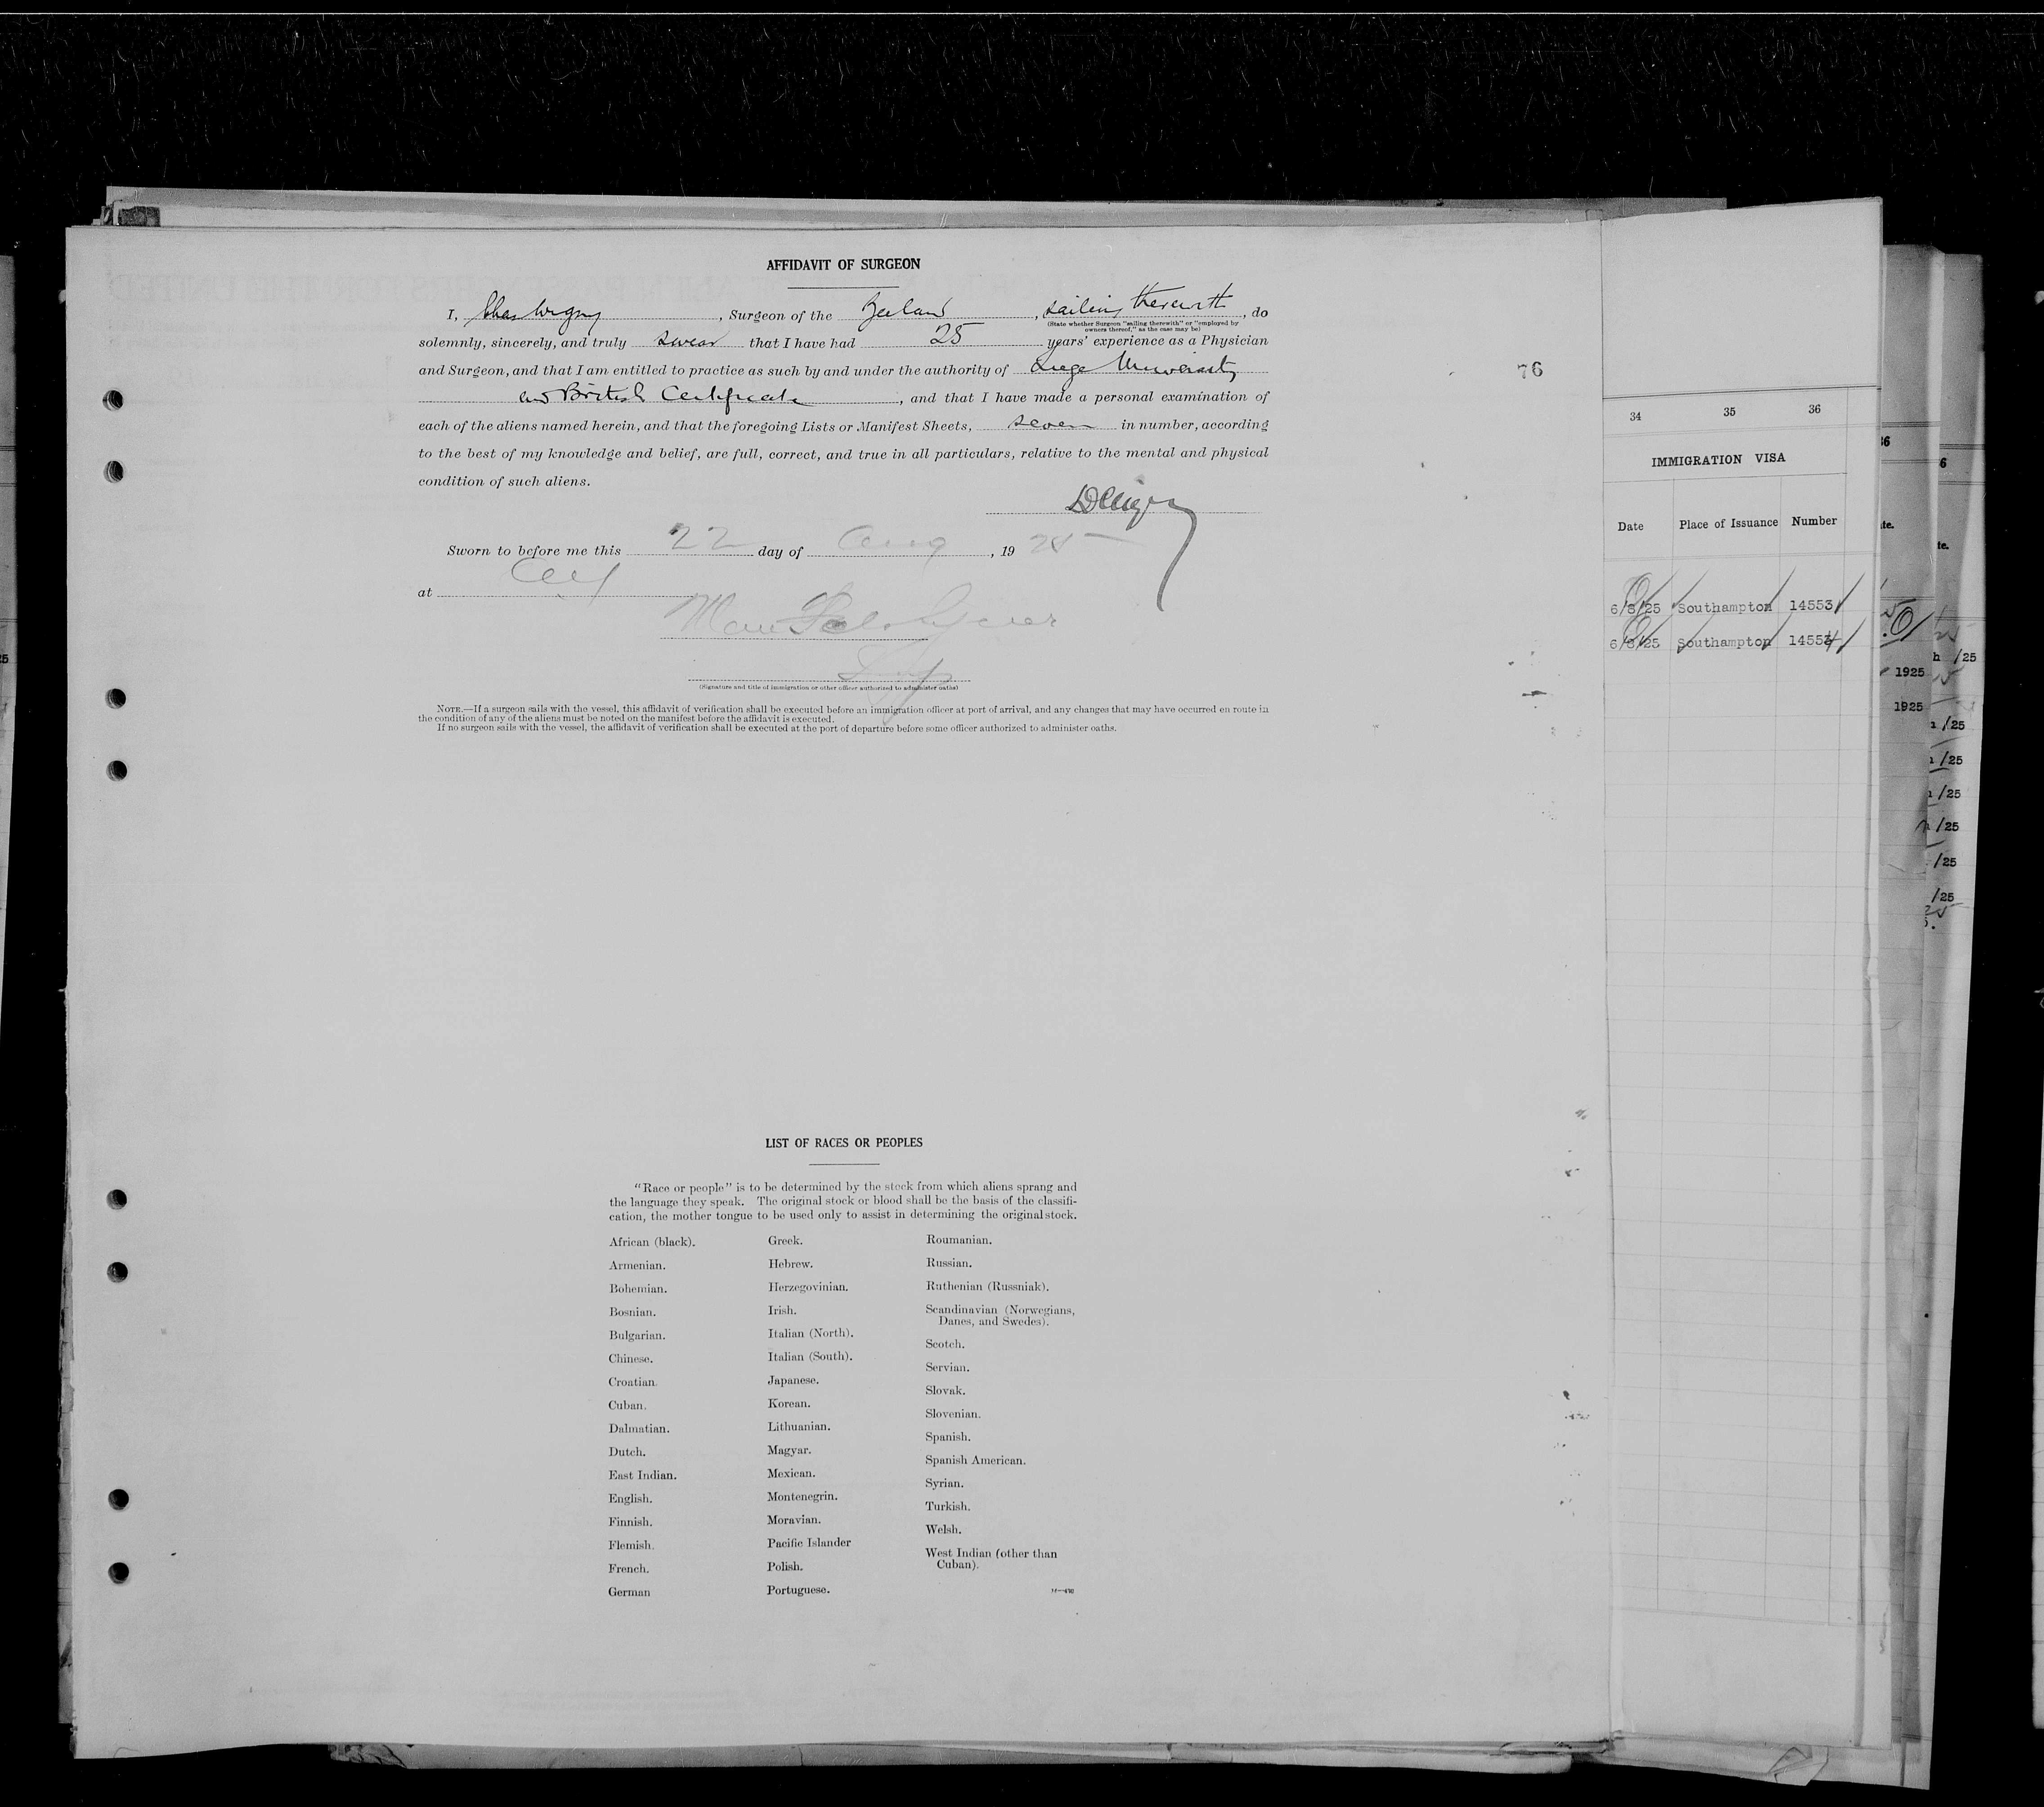 AFFIDAVIT OF SURGEON
I, Chas Wigny, Surgeon of the Zeeland, sailing therewith, do
(State whether Surgeon "sailing therewith" or "employed by
owners thereof," as the case may be)
solemnly, sincerely, and truly swear that I have had 25 years' experience as a Physician
and Surgeon, and that I am entitled to practice as such by and under the authority of Liege University
and British Certificate, and that I have made a personal examination of
each of the aliens named herein, and that the foregoing Lists or Manifest Sheets, seven in number, according
to the best of my knowledge and belief, are full, correct, and true in all particulars, relative to the mental and physical
condition of such aliens.
Sworn to before me this 22 day of Aug, 19 25
at
(Signature and title of immigration or other officer authorized to administer oaths)
NOTE.—If a surgeon sails with the vessel, this affidavit of verification shall be executed before an immigration officer at port of arrival, and any changes that may have occurred en route in
the condition of any of the aliens must be noted on the manifest before the affidavit is executed.
If no surgeon sails with the vessel, the affidavit of verification shall be executed at the port of departure before some officer authorized to administer oaths.
76
34 35 36
IMMIGRATION VISA
Date Place of Issuance Number
6/8/25 Southampton 14553
6/8/25 Southampton 14554
1925
1925
/25
/25
/25
/25
/25
/25
/25
LIST OF RACES OR PEOPLES
"Race or people" is to be determined by the stock from which aliens sprang and
the language they speak. The original stock or blood shall be the basis of the classifi-
cation, the mother tongue to be used only to assist in determining the original stock.
African (black).
Armenian.
Bohemian.
Bosnian.
Bulgarian.
Chinese.
Croatian.
Cuban.
Dalmatian.
Dutch.
East Indian.
English.
Finnish.
Flemish.
French.
German
Greek.
Hebrew.
Herzegovinian.
Irish.
Italian (North).
Italian (South).
Japanese.
Korean.
Lithuanian.
Magyar.
Mexican.
Montenegrin.
Moravian.
Pacific Islander
Polish.
Portuguese.
Roumanian.
Russian.
Ruthenian (Russniak).
Scandinavian (Norwegians,
Danes, and Swedes).
Scotch.
Servian.
Slovak.
Slovenian.
Spanish.
Spanish American.
Syrian.
Turkish.
Welsh.
West Indian (other than
Cuban).